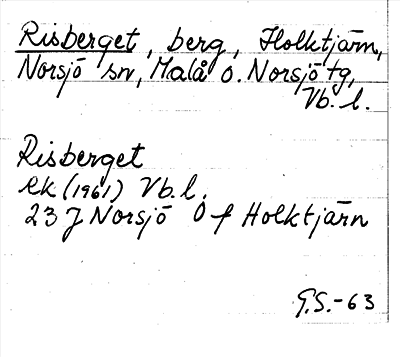 Risberget, berg, Holktjärn,
Norsjö sn, Malå o. Norsjö tg,
Vb. l.
Risberget
ek (1961) Vb. l.
23 J Norsjö Ö f Holktjärn
G.S.-63